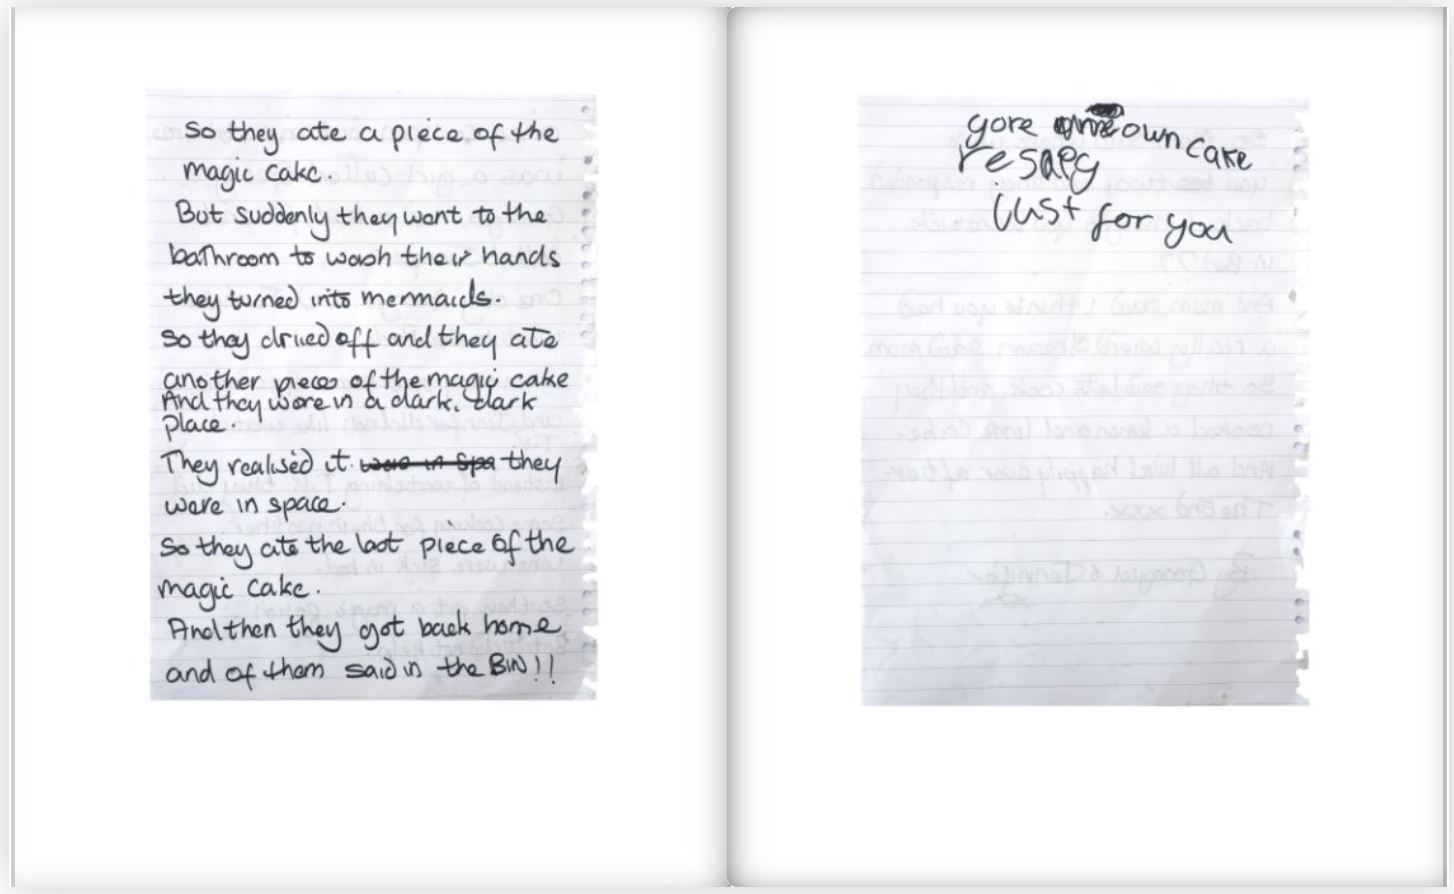 So they ate a piece of the
magic cake.
But suddenly they went to the
bathroom to wash their hands
they turned into mermaids.
So they dried off and they ate
another piece of the magic cake
And they were in a dark, dark
place.
They realised it were in spa they
were in space.
So they ate the last piece of the
magic cake.
And then they got back home
and of them said in the BIN!!
yore own cake
resapy
Just for you